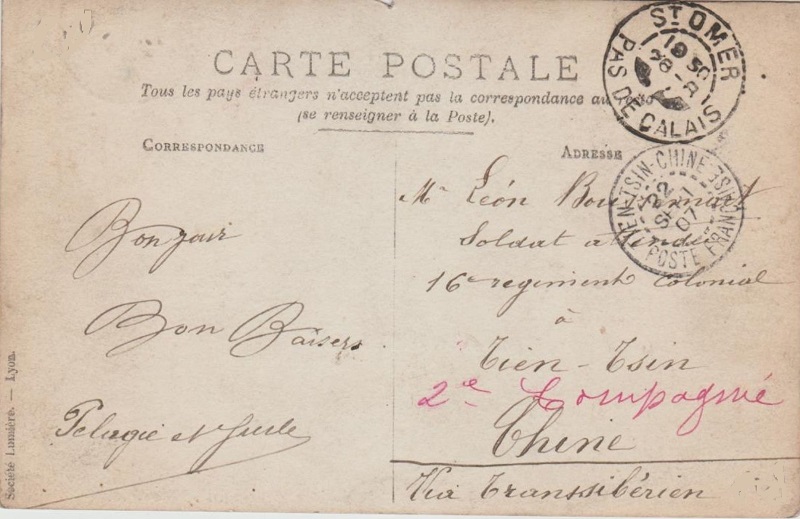 CARTE POSTALE
Tous les pays étrangers n'acceptent pas la correspondance au
(se renseigner à la Poste).
CORRESPONDANCE
ADRESSE
ST OMER
PAS DE CALAIS
TIEN-TSIN-CHINE
22
07
POSTE FRANÇAISE
Bonjour
Bon Baisers
Pelagie et
Mr Léon
Soldat
16e regiment Colonial
à
Tien-Tsin
2e Compagnie
Chine
Via Transsibérien
Société Lumière. — Lyon.